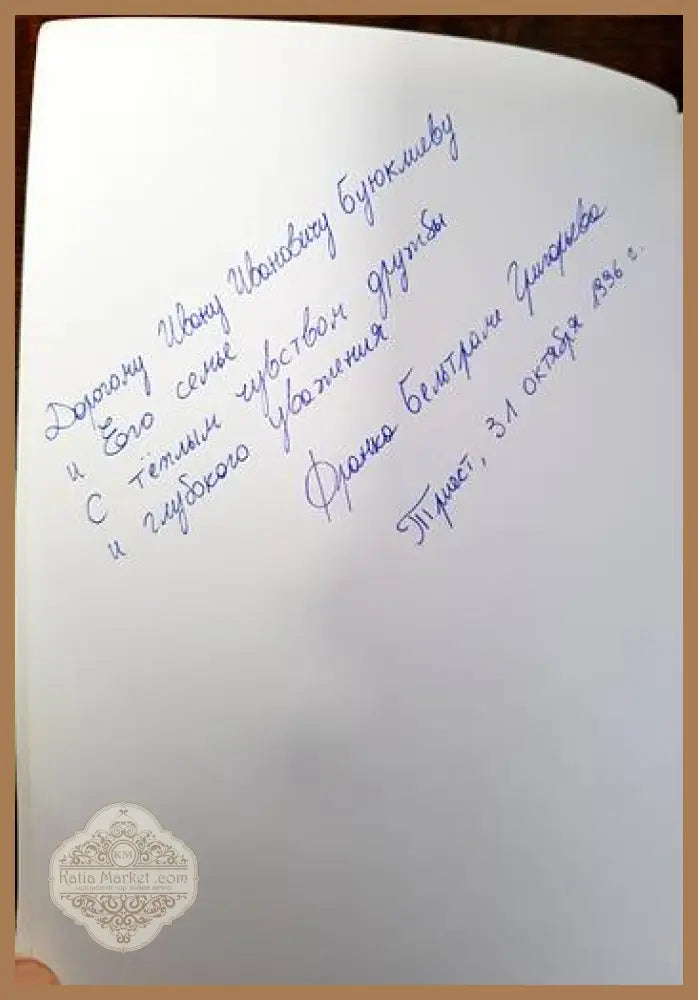 Дорогому Ивану Ивановичу Буюклиеву
и Его семье
С тёплым чувством дружбы
и глубокого уважения
Франко Бельтраме Григорьева
Триест, 31 октября 1996 г.
KM
Katia Market .com